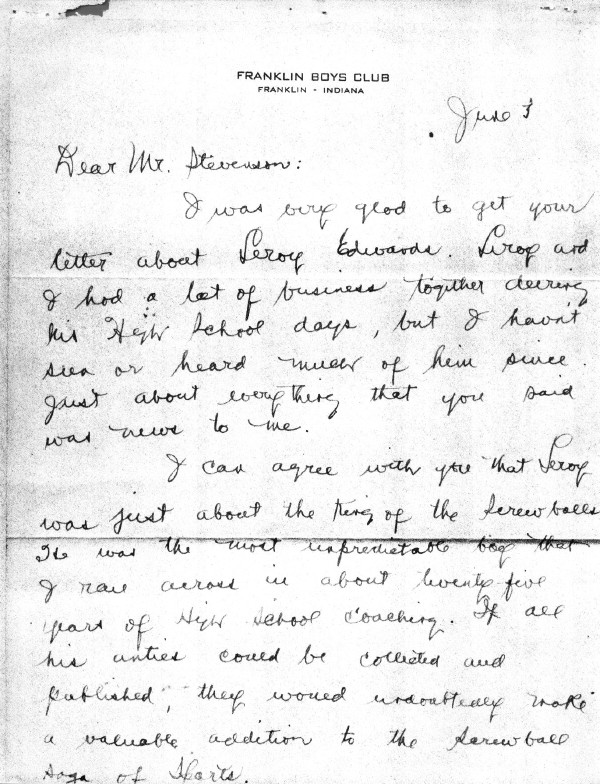 FRANKLIN BOYS CLUB
FRANKLIN - INDIANA
June 3
Dear Mr. Stevenson:
I was very glad to get your
letter about Leroy Edwards. Leroy and
I had a lot of business together during
his High School days, but I havn't
seen or heard much of him since.
Just about everything that you said
was news to me.
I can agree with you that Leroy
was just about the King of the Screwballs
He was the most unpredictable boy that
I ran across in about twenty-five
years of High School Coaching. If all
his antics could be collected and
published, they would undoubtedly make
a valuable addition to the Screwball
Saga of Sports.